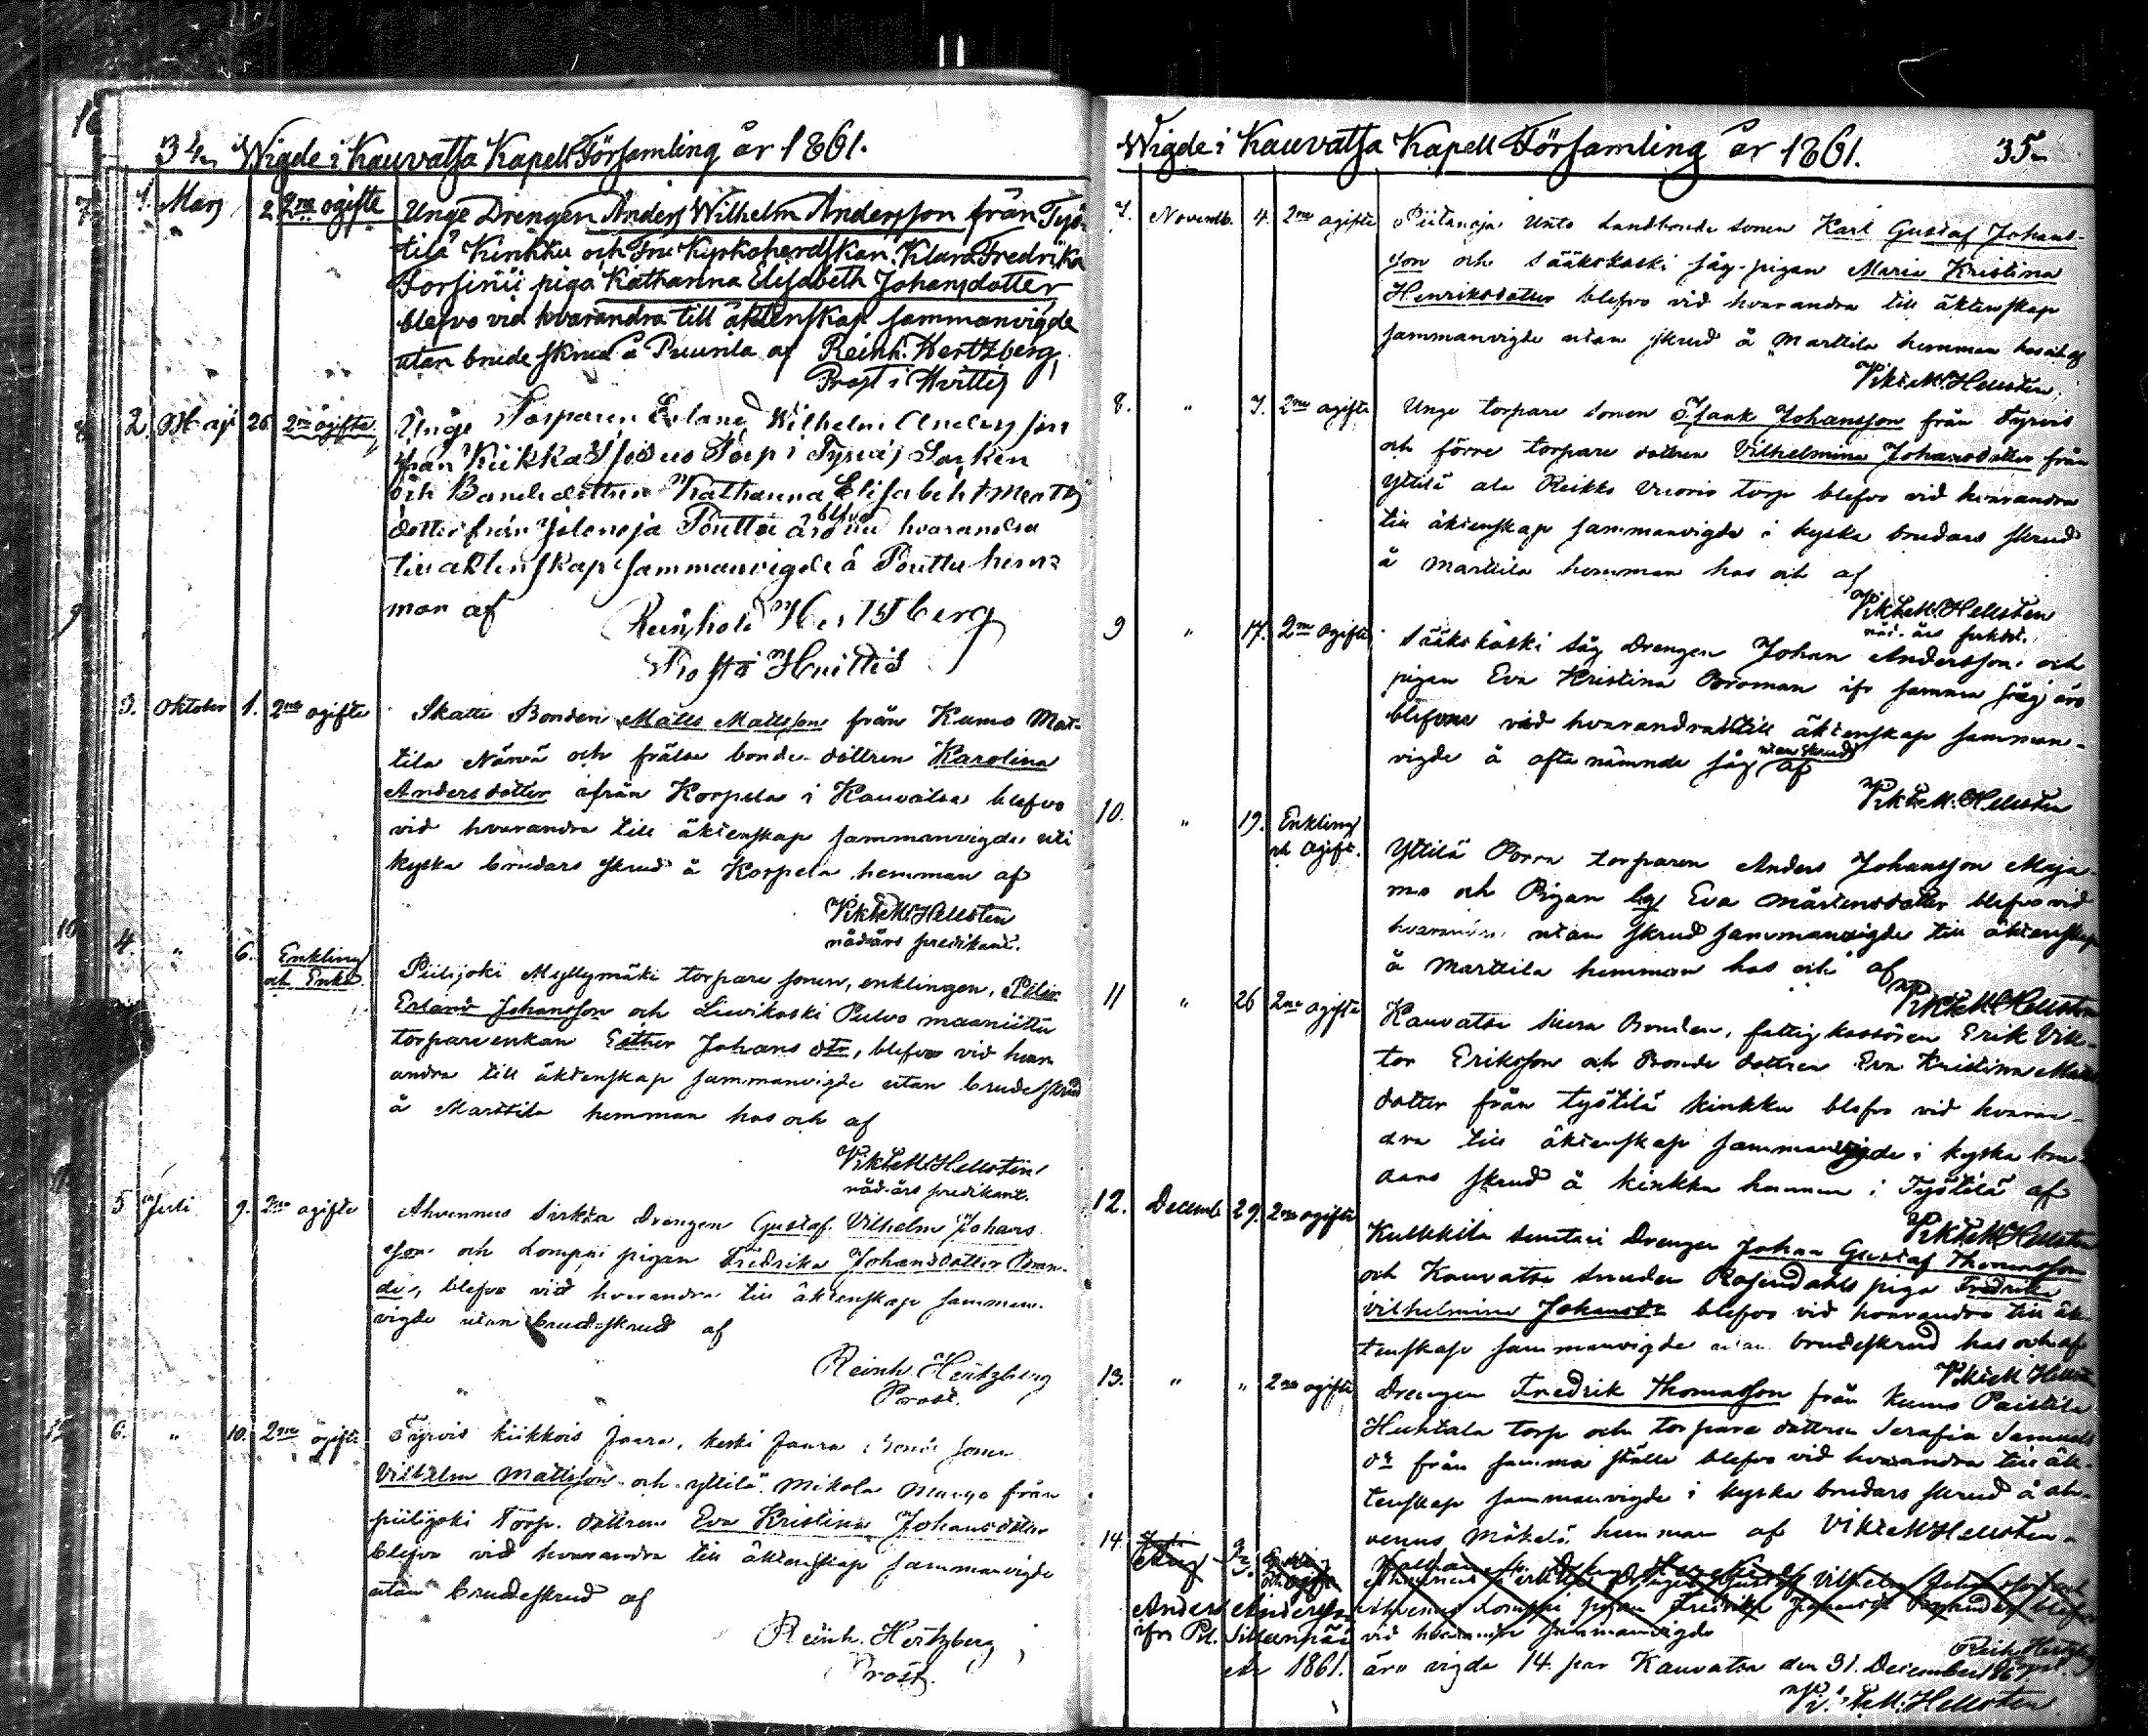 34. Wigde i Kauvatsa Kapell Församling år 1861.
1. Mars 2 2ne ogifte Unge Drengen Anders Wilhelm Andersson från Työ-
tilä Kinkku och Fru Kyrkoherdskan Klara Fredrika
Forsinii piga Katharina Elisabeth Johansdotter
blefvo vid hvarandra till äktenskap sammanvigde
utan brudeskrud å Puurila af Reinh. Hertzberg,
Prost i Hvittis
2. Maji 26 2ne ogifte Unge Torparen Erland Wilhelm Andersson
från Kiikka Torp i Tyrvis Socken
och Bondedottren Katharina Elisabeht
dotter från Jalonoja Pouttu äro blefvo hvarandra
till äktenskap sammanvigde å Pouttu hem-
man af Reinhold Hertzberg
Prost i Huittis
3. Oktober 1. 2ne ogifte Skatte Bonden Matts Mattsson från Kumo Mat-
tila Närvä och frälse bonde-dottren Karolina
Andersdotter ifrån Korpela i Kauvatsa blefvo
vid hvarandra till äktenskap sammanvigde uti
kyska brudars skrud å Korpela hemman af
Vikt. M. Hellsten
nåd-års predikant.
4. " 6. Enkling
och Enka Piilijoki Myllymäki torpare sonen, enklingen,
Erland Johansson och Lievikoski Pulvo maaniittu
torpareenkan Esther Johans dtr, blefvo vid hvar
andra till äktenskap sammanvigde utan brudeskrud
å Marttila hemman hos och af
Vikt. M. Hellsten
nåd-års predikant.
5 Juli 9. 2ne ogifte Ahvennus Sirkka Drengen Gustaf Vilhelm Johans
son och Lomppi pigan Fredrika Johansdotter Bran-
der, blefvo vid hvarandra till äktenskap samman-
vigde utan brudeskrud af
Reinh. Hertzberg
Prost.
6. " 10. 2ne ogifte Tyrvis kiikkois Jaara, keski Jaara bonde sonen
Vilhelm Mattsson och yttilä Mikola från
piilijoki Torp. dottren Eva Kristina Johansdotter
blefvo vid hvarandra till äktenskap sammanvigde
utan brudeskrud af
Reinh. Hertzberg
Prost.
Wigde i Kauvatsa Kapell Församling år 1861. 35.
7. Novemb. 4. 2ne ogifte Piilanoja Unto Landbonde sonen Karl Gustaf Johans-
son och Sääkskoski såg-pigan Maria Kristina
Henriksdotter blefvo vid hvarandra till äktenskap
sammanvigde utan skrud å Marttila hemman hos och af
Vikt. M. Hellsten
8. " 7. 2ne ogifte Unge torpare sonen Isaak Johansson från Tyrvis
och förre torpare dottren Vilhelmina Johansdotter från
Yttilä ala Reikko Vuorio torp blefvo vid hvarandra
till äktenskap sammanvigde i kyska brudars skrud
å Marttila hemman hos och af
Vikt. M. Hellsten
nåd. års predikt.
9 " 17. 2ne ogifte Sääkskoski såg Drengen Johan Andersson och
pigan Eva Kristina Broman ifr samma såg äro
blefvo vid hvarandra till äktenskap samman-
vigde å ofta nämnde såg utan skrud af
Vikt. M. Hellsten
10. " 19. Enkling
och Ogift. Yttilä Porra torparen Anders Johansson Maja-
mo och Pigan Eva Mårtensdotter blefvo vid
hvarandra utan skrud sammanvigde till äktenskap
å Marttila hemman hos och af
Vikt. M. Hellsten
11 " 26 2ne ogifte Kauvatsa Bonden, fattig kassören Erik Vik-
tor Eriksson och Bonde dottren Eva Kristina Matts
dotter från työtilä kinkku blefvo vid hvaran-
dra till äktenskap sammanvigde i kyska bru-
dars skrud å kinkku hemman i Työtilä af
Vikt. M. Hellsten
12. Decemb 29. 2ne ogifte Kulkkila Drengen Johan Gustaf Thomasson
och Kauvatsa Rosendahls piga Fredrika
Vilhelmina Johansdr blefvo vid hvarandra till äk-
tenskap sammanvigde utan brudeskrud hos och af
Vikt. M. Hellsten
13. " " 2ne ogifte Drengen Fredrik Thomasson från kumo Paistila
Huhtala torp och torpare dottren Serafia Samuels
dr från samma ställe blefvo vid hvarandra till äk-
tenskap sammanvigde i kyska brudars skrud å ah-
vennus Mäkelä hemman af Vikt M Hellsten
14.
Drengen Gustaf Vilhelm Johansson och
Anders Andersson Ahvennus Lomppi pigan Fredrika blefvo
ifrn Sillanpää vid hvarandra sammanvigde
Reinh. Hertzberg
År 1861. äro vigde 14 par Kauvatsa den 31. December
Vikt. M. Hellsten